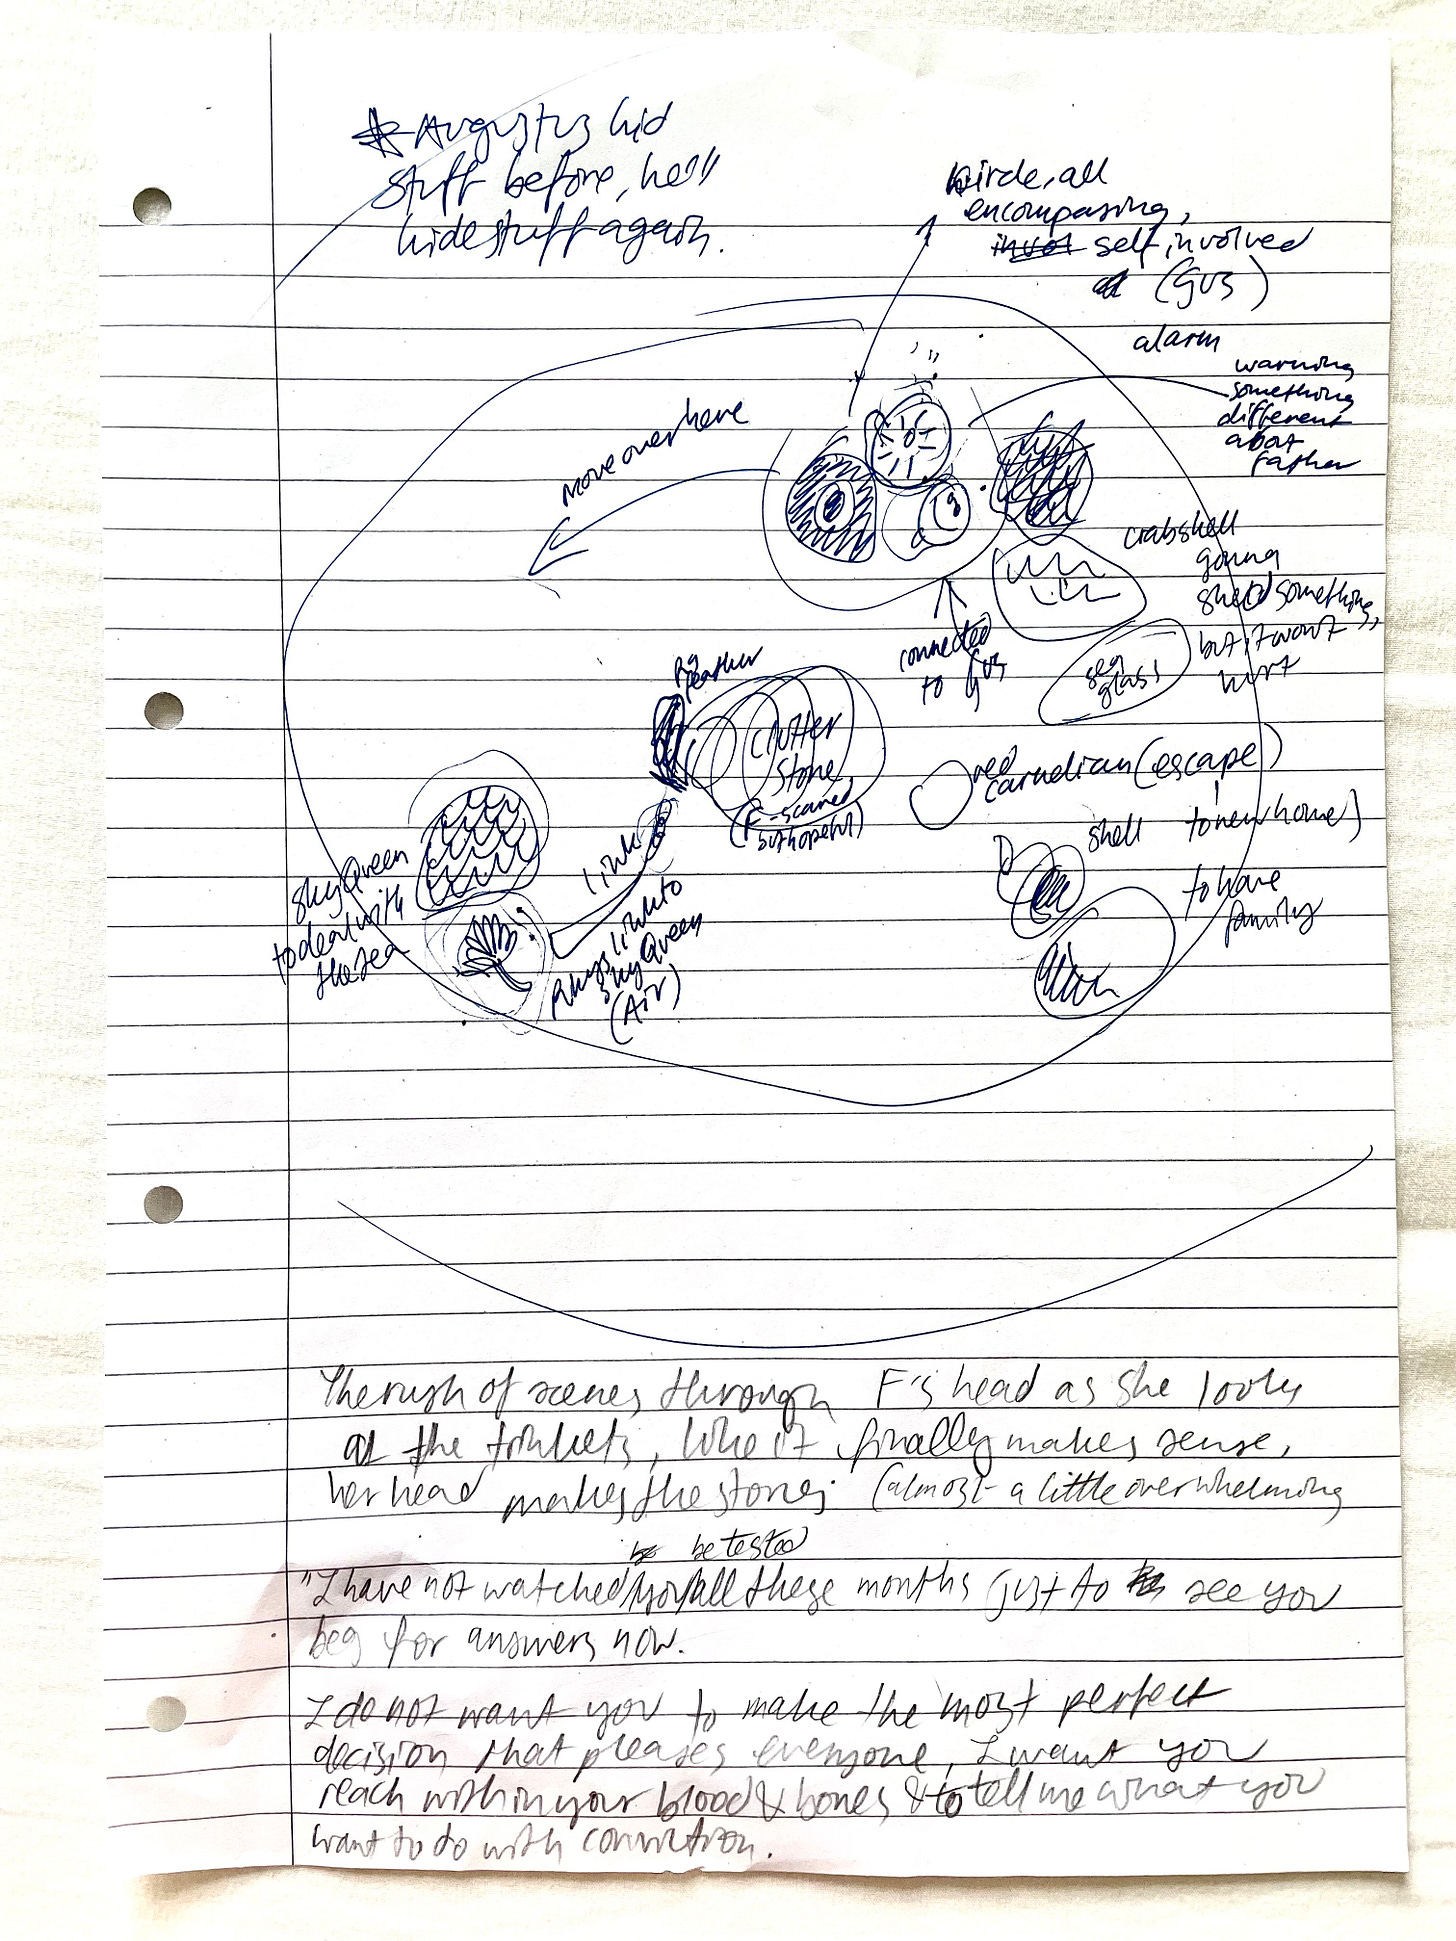 Augustus hid
stuff before, he'll
hide stuff again.
circle, all
encompasing,
self, involved
(Gus)
alarm
warning
something
different
about
father
move over here
crabshell
gonna
shed something,
but it won't
hurt
connected
to Gus
sea
glass
feather
clutter
stone
(F-scared
but hopeful)
red
carnelian (escape)
to new home)
shell
to have
family
link
sky Queen
to deal with
the sea
always link to
sky Queen
(Air)
The rush of scenes through F's head as she looks
at the trinkets, like it finally makes sense,
her head makes the stories (almost a little overwhelming
be tested
"I have not watched you all these months just to see you
beg for answers now.
I do not want you to make the most perfect
decision that pleases everyone, I want you
reach within your blood & bones & to tell me what you
want to do with conviction.